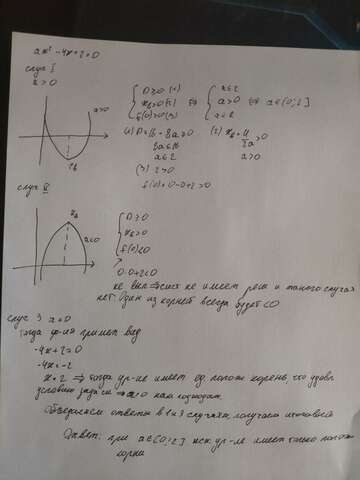 ax² - 4x + 2 = 0
случ I
a > 0
a>0
x_b
{ D ≥ 0 (1)
x_b > 0 (2)
f(0) > 0 (3)
⇔ { a ≤ 2
a > 0 ⇔ a ∈ (0; 2]
a ∈ R
(1) D = 16 - 8a ≥ 0
8a ≤ 16
a ≤ 2
(2) x_b = 4/2a > 0
a > 0
(3) 2 > 0
f(0) = 0 - 0 + 2 > 0
случ II
x_b
a<0
{ D ≥ 0
x_b > 0
f(0) < 0
0 - 0 + 2 < 0
не вып ⇒ сист не имеет реш и такого случая
нет. Один из корней всегда будет < 0
случ 3 a = 0
Тогда ф-ия примет вид
-4x + 2 = 0
-4x = -2
⇒ тогда ур-ие имеет ед. полож корень, что удовл
условию задачи ⇒ a = 0 нам подходит.
Объединяем ответы в 1 и 3 случаях, получаем итоговый
Ответ: при a ∈ [0; 2] исх ур-ие имеет только полож
корни